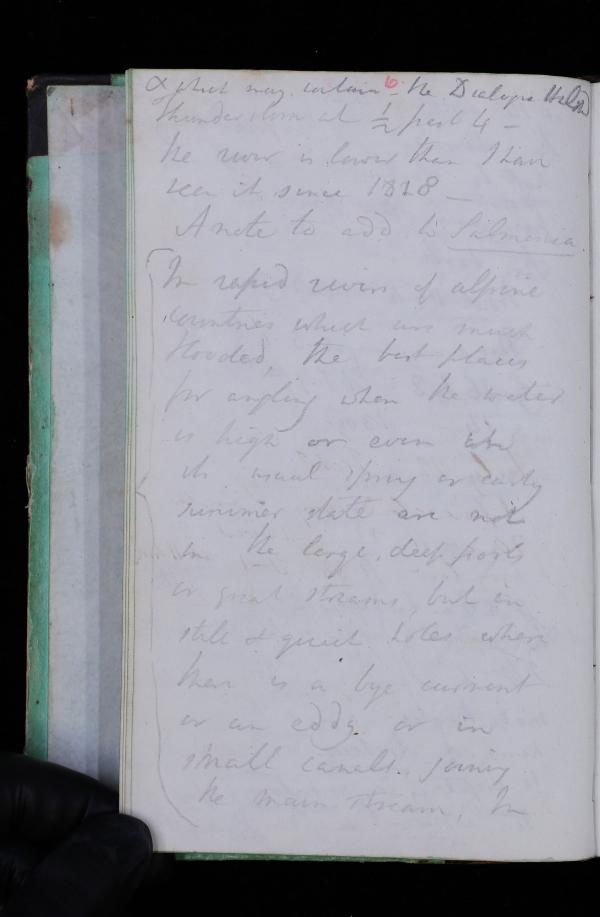 & which may contain 6 the Dialogue
Thunder storm at ½ past 4 –
the river is lower than I have
seen it since 1818 –
A note to add to Salmonia.
In rapid rivers of alpine
countries which are much
flooded, the best places
for angling when the water
is high or even in
its usual spring or early
summer state are not
in the large, deep pools
or great streams, but in
still & quiet holes where
there is a bye current
or an eddy or in
small canals joining
the main stream, In